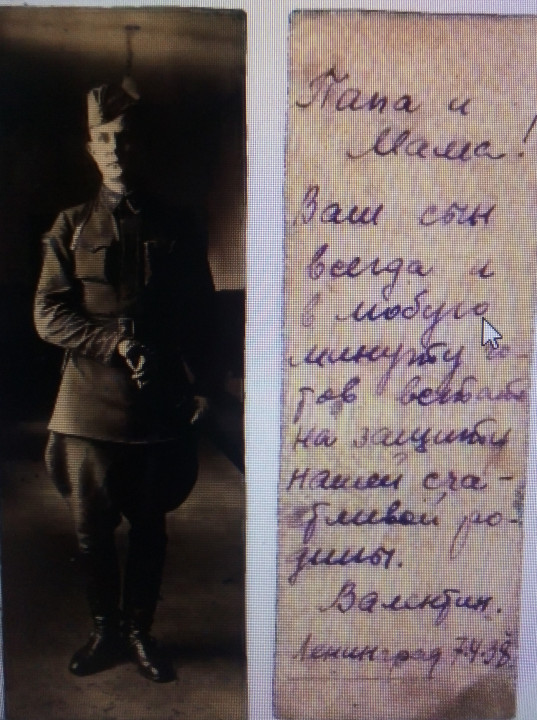 Папа и
Мама!
Ваш сын
всегда и
в любую
минуту го-
тов встать
на защиту
нашей сча-
стливой ро-
дины.
Валентин.
Ленинград 7.4.38.